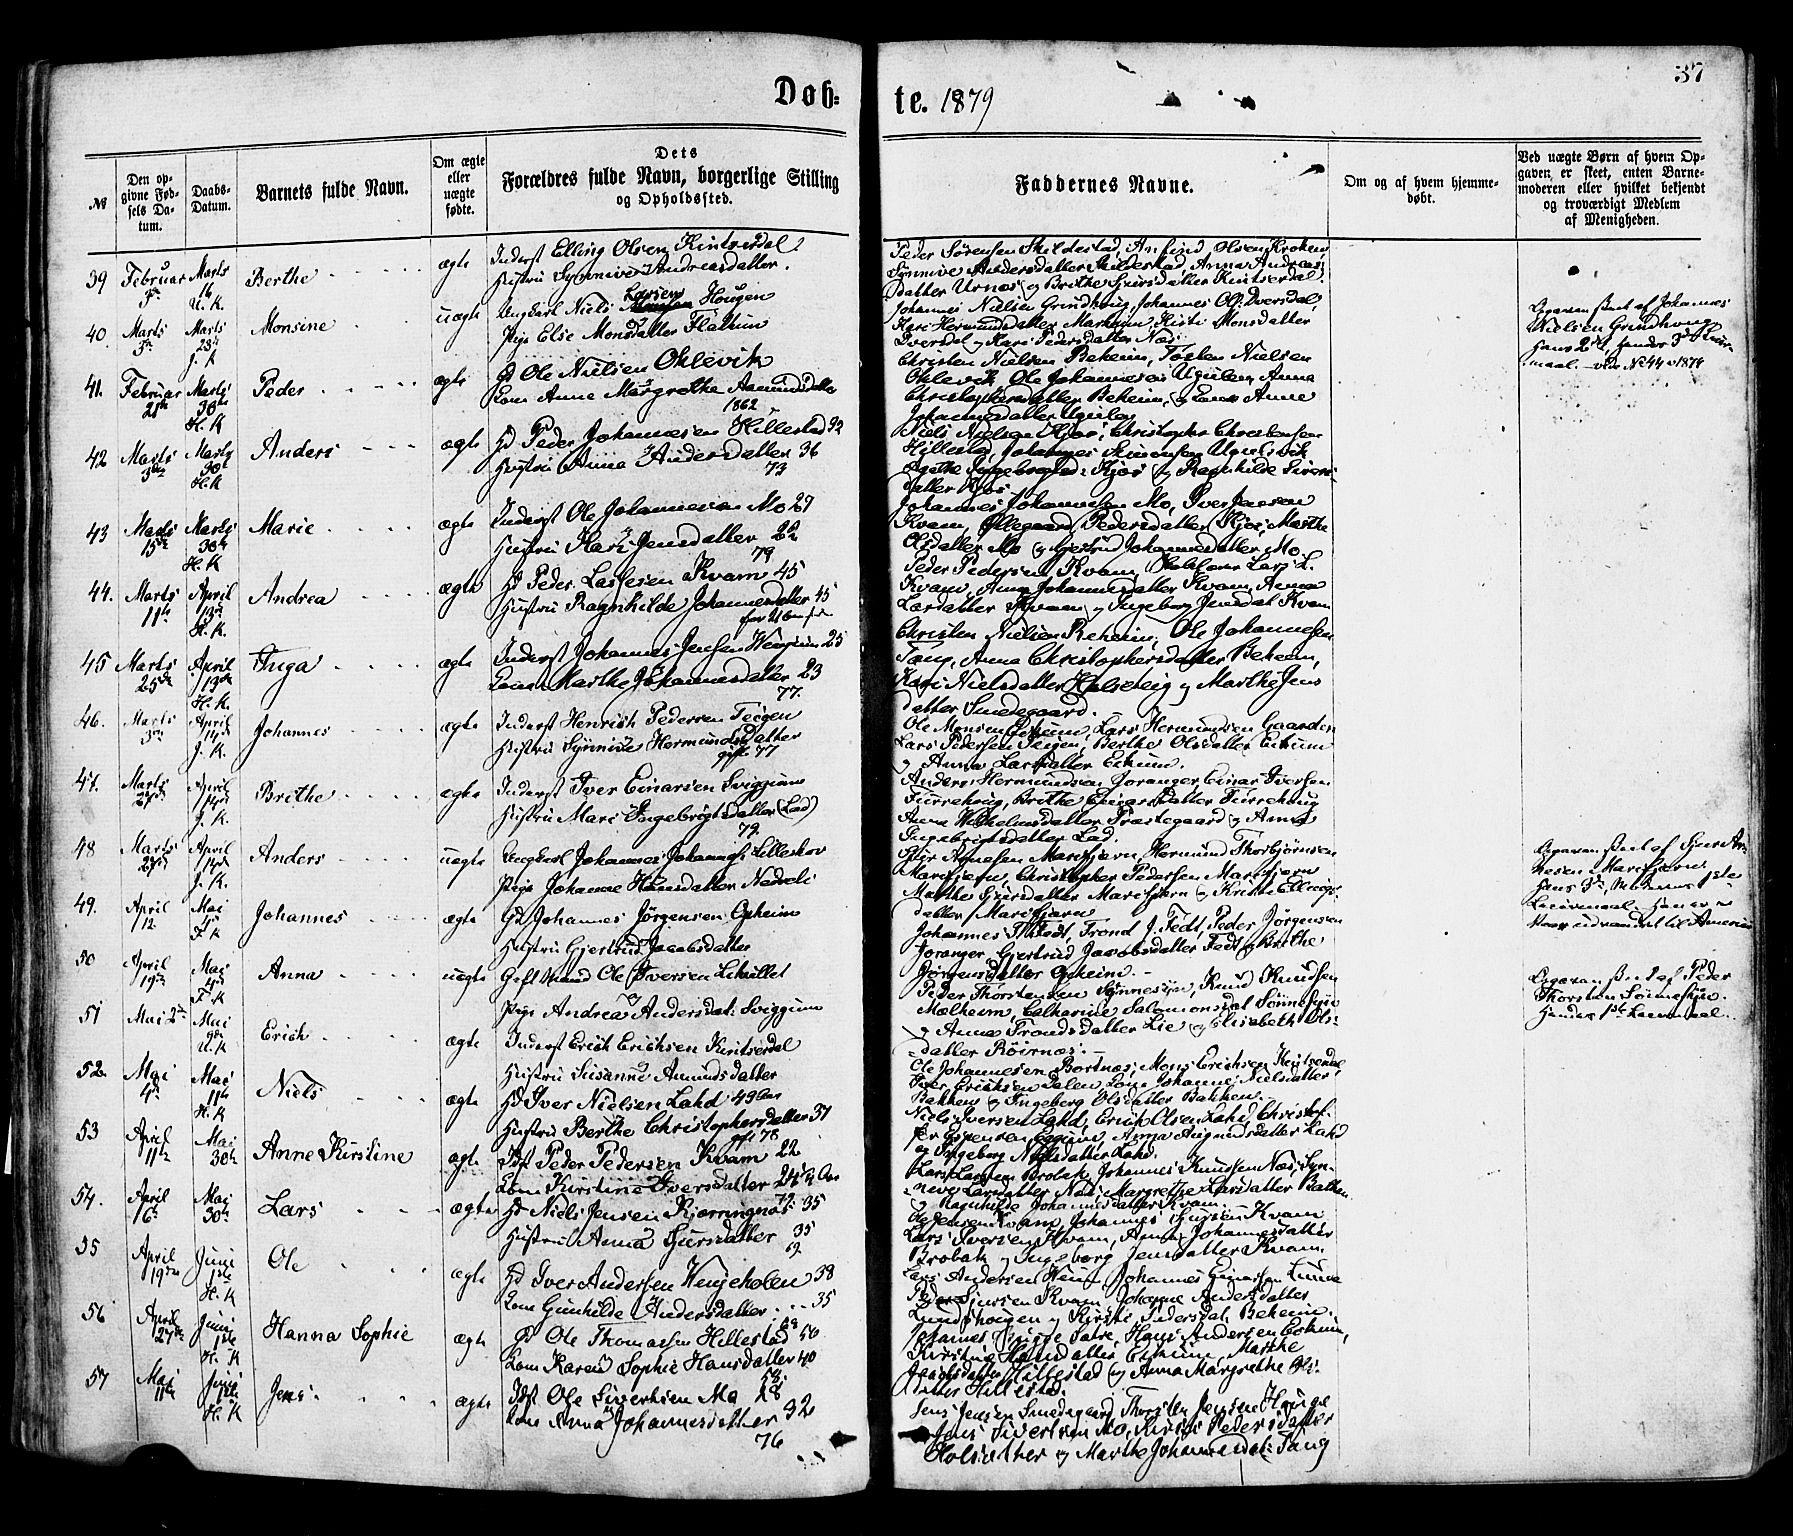 Døb=
te. 1879
37
№
Den op-
givne Fød-
sels Da-
tum.
Daabs-
Datum.
Barnets fulde Navn.
Om ægte
eller
uægte
fødte.
Dets
Forældres fulde Navn, borgerlige Stilling
og Opholdssted.
Faddernes Navne.
Om og af hvem hjemme-
døbt.
Ved uægte Børn af hvem Op-
gaven er skeet, enten Barne-
moderen eller hvilket bekjendt
og troværdigt Medlem
af Menigheden.
39 Februar Marts 16 U. K Berthe ægte
Inderst Elling Olsen Kintserdal
Hustru Synnive Andreasdatter.
Peder Sørensen Skildestad, Anfind Olsen Kroken,
Synnive Andersdatter Skildestad, Anna Andreas-
datter Urnæs og Brithe Gjursdatter Kintserdal.
40 Marts 3 Marts 23 J. K Monsine uægte
Ungkarl Niels Larsen Hougen
Pige Else Monsdatter Flattum
Johannes Nielsen Grindhoug, Johannes Ol: Dversdal,
Kari Hermundsdatter Markum, Kirsti Monsdatter
Dversdal og Kari Pedersdatter Næs
Opgaven skeet af Johannes
Nielsen Grindhoug
hans 2det, hendes 3die Leier-
maal. vid No 44 1874
41. Februar 28 Marts 30 H. K Peder ægte
Gd Ole Nielsen Oklevik
Kone Anne Margrethe Aamundsdatter
1862
Christen Nielsen Beheim, Torsten Nielsen
Oklevik, Ole Johannesen Ugulen, Anna
Christophersdatter Beheim, og Anne
Johannesdatter Ugulen
42 Marts 3 Marts 30 H. K Anders ægte
Gd Peder Johannesen Hillestad 32
Hustru Anna Andersdatter 36
73
Niels Nielsen Kjøs, Christopher Christensen
Hillestad, Johannes Simonsen Ugulsvik
Agethe Ingebrigtsd: Kjøs og Ragnhilde Sivers-
datter Kjøs
43 Marts 15 Marts 30 H. K Marie ægte
Inderst Ole Johannesen Mo 27
Hustru Kari Jensdatter 22
79
Johannes Johannesen Mo, Iver Jensen
Kvam, Øllegaard Pedersdatter Kjøs, Marthe
Olsdatter Mo og Gjertrud Johannesdatter Mo.
44. Marts 11 April 13 H. K. Andrea ægte
Gd Peder Lassesen Kvam 45
Hustru Ragnhilde Johannesdatter 45
Peder Pedersen Kvam, Lars L.
Kvam, Anna Johannesdatter Kvam, Anna
Larsdatter Kvam og Ingeborg Jensdat Kvam
45 Marts 25 April 13 H. K. Inga ægte
Inderst Johannes Jensen Wengum 25
Kone Marthe Johannesdatter 23
77.
Christen Nielsen Beheim, Ole Johannesen
Tang, Anna Christophersdatter Beheim,
Kari Nielsdatter Holseteig og Marthe Jens
datter Smedegaard.
46. Marts April 14 J. K. Johannes ægte
Inderst Henrich Pedersen Teigen
Hustru Synnive Hermundsdatter
gift 77
Ole Monsen Eikum, Lars Hermundsen Gaarden
Lars Pedersen Teigen, Berthe Olsdatter Eikum
og Anna Larsdatter Eikum.
47. Marts 27 April 14 J. K. Brithe ægte
Inderst Iver Einarsen Sviggum
Hustru Mari Ingebrigtsdatter (Lad)
79.
Anders Hermundsen Joranger, Einar Iversen
Furrehoug, Brithe Einarsdatter Furrehoug
Anna Wilhelmsdatter Præstegaard og Anna
Ingebrigtsdatter Lad.
48 Marts 27 April 14 J. K. Anders uægte
Ungkarl Johannes Johannes: Lilleskov
Pige Johanne Hansdatter Nedreli
Gjur Arnesen Marifjæren, Hermund Thorbjørnsen
Marifjæren, Christopher Pedersen Marifjæren
Marthe Gjursdatter Marifjæren og Kristi Ellings-
datter Marifjæren
Opgaven skeet af Gjur Ar-
nesen Marifjæren
hans 3die, Moderens 1ste
Leiermaal. Han er
udvandret til Amerika
49. April 12 Mai 4 F. K Johannes ægte
Gd Johannes Jørgensen Opheim
Hustru Gjertrud Jacobsdatter
Johannes T. Fedt, Trond J. Fedt, Peder Jørgensen
Joranger, Gjertrud Jacobsdatter Fedt og Brithe
Jørgensdatter Opheim.
50 April 19 Mai 4 F. K Anna uægte
Gift Mand Ole Iversen Lihullet
Pige Andrea Andersdat: Sviggum
Peder Thorstensen Synnesøn, Knud Knudsen
Molheim, Catharine Salomonsdat Sønnesyn
og Anna Trondsdatter Lie og Elisabeth Ols-
datter Røirnæs.
Opgaven skeet af Peder
Thorsten Sønnesyn.
Hendes 1ste Leiermaal.
51 Mai 2 Mai 9 U. K Erich ægte
Inderst Erich Erichsen Kintserdal
Hustru Susanne Amundsdatter
Ole Johannesen Bortnæs, Mons Erichsen Kintserdal,
Iver Erichsen Dalen, Kone Johanne Nielsdatter
Bakken og Ingeborg Olsdatter Bakken.
52. Mai 4 Mai 11 H. K Niels ægte
Gd Iver Nielsen Lahd 49 Aar
Hustru Berthe Christophersdatter 37
gift 78
Niels Iversen Lahd, Erich Olsen Lahd, Christof-
fer Espensen, Anna Aasmundsdatter Lahd
og Ingeborg Nielsdatter Lahd.
53 April 11 Mai 30 Anne Kirstine ægte
Idst Peder Pedersen Kvam 22
Kone Kirstine Iversdatter 24½ Aar
79.
Lars Larsen Brobak, Johannes Knudsen Næs, Syn-
neve Larsdatter Næs, Margrethe Larsdatter Bakken
og Ragnhilde Johannesdatter Kvam.
54. April 16 Mai 30 Lars ægte
Gd Niels Jensen Kjærringnæs 35
Hustru Anna Gjursdatter 35
Ole Jensen Kvam, Johannes Gjursen Kvam
Lars Iversen Kvam, Anna Johannesdatter
Brobak og Ingeborg Jensdatter Kvam.
55 April 19 Juni 1ste H. K Ole ægte
Gd Iver Andersen Wengeholen 38
Kone Gunhilde Andersdatter 35
68
Lars Andersen Wenn, Johannes Einarsen Lunde
Peder Gjursen Kvam, Johanne Andersdatter
Lundshougen og Kirsti Pedersdat. Beheim.
56 April 27 Juni 1ste H. K Hanna Sophie ægte
Gd Ole Thomassen Hillestad 50
Kone Karen Sophie Hansdatter 40
58.
Johannes Sætre, Hans Andersen Eikum,
Kirstine Hansdatter Eikum, Marthe
Jacobsdatter Hillestad og Anna Margrethe Ols-
datter Hillestad.
57 Mai 11 Juni 1ste H. K Jens ægte
Idst Ole Sivertsen Mo 28
Kone Anna Johannesdatter 32
76
Jens Jensen Smedegaard, Thorsten Jensen Hauge
Jens Sivertsen Mo, Kirsti Pedersdatter
Holsæther og Marthe Johannesdat: Tang